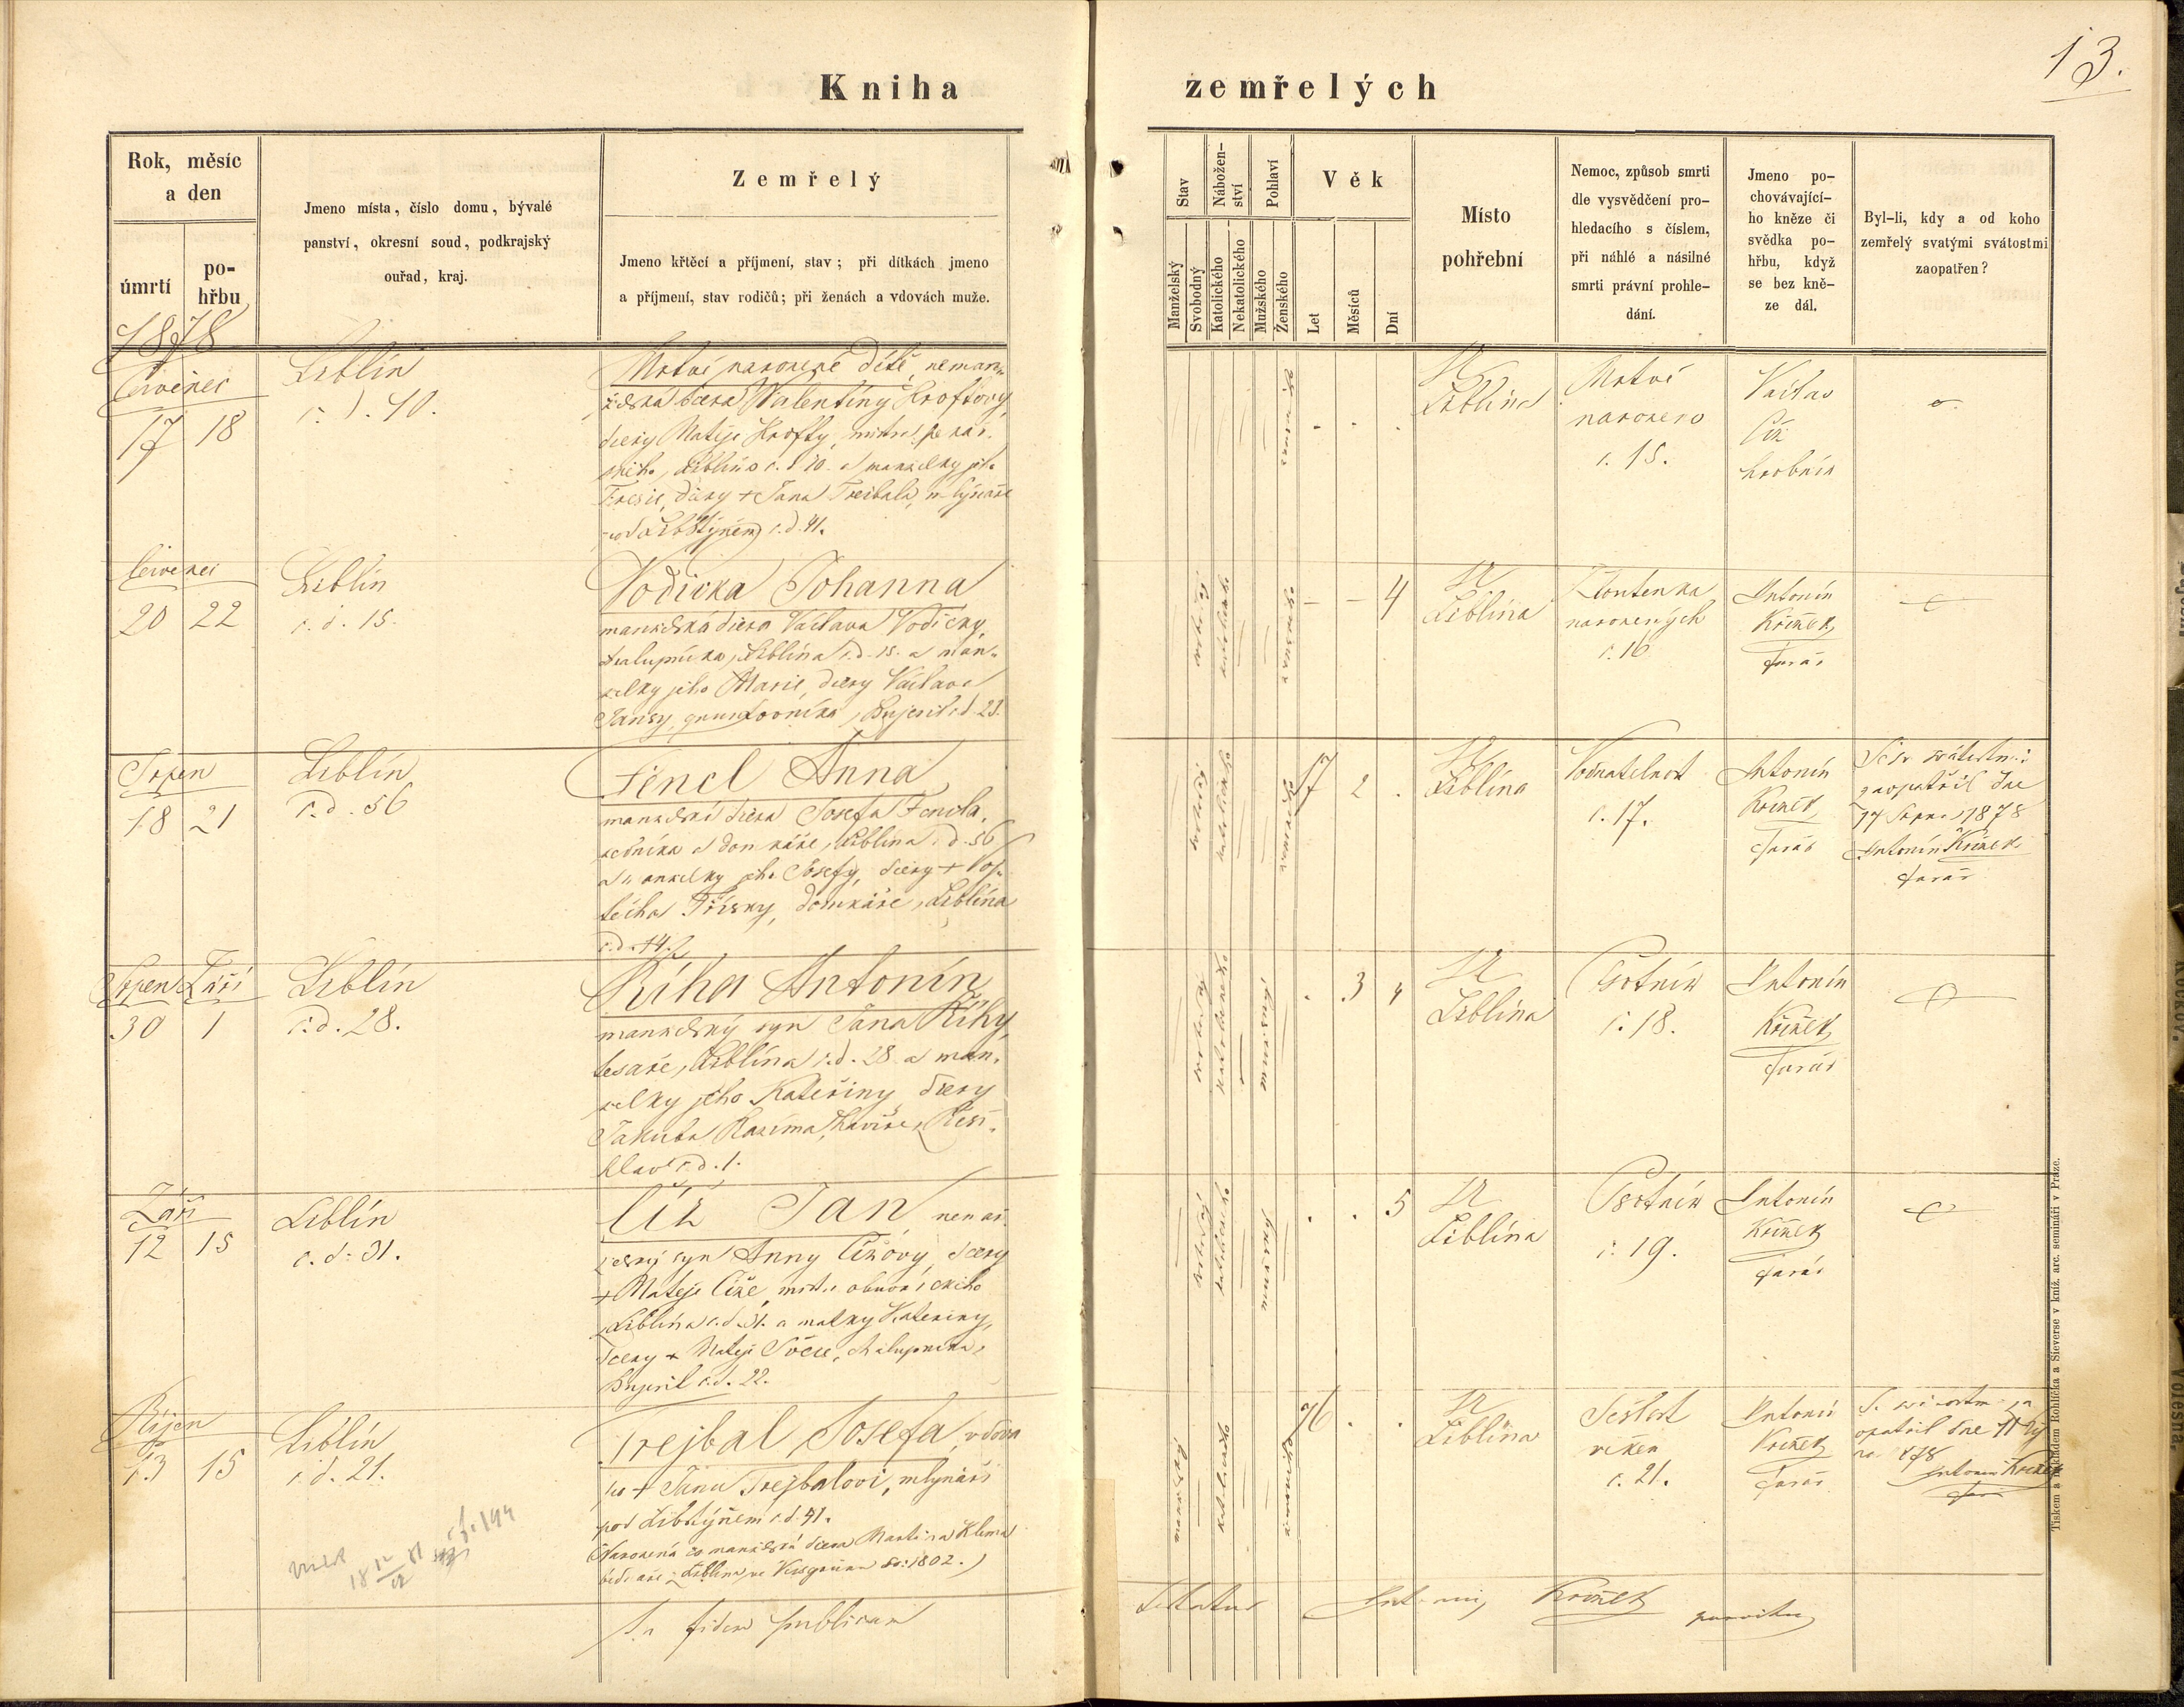 13.
Kniha zemřelých
Rok, měsíc
a den
úmrtí
po-
hřbu
Jmeno místa, číslo domu, bývalé
panství, okresní soud, podkrajský
ouřad, kraj.
Zemřelý
Jmeno křtěcí a příjmení, stav; při dítkách jmeno
a příjmení, stav rodičů; při ženách a vdovách muže.
Stav
Manželský
Svobodný
Nábožen-
ství
Katolického
Nekatolického
Pohlaví
Mužského
Ženského
Věk
Let
Měsíců
Dní
Místo
pohřební
Nemoc, způsob smrti
dle vysvědčení pro-
hledacího s číslem,
při náhlé a násilné
smrti právní prohle-
dání.
Jmeno po-
chovávající-
ho kněze či
svědka po-
hřbu, když
se bez kně-
ze dál.
Byl-li, kdy a od koho
zemřelý svatými svátostmi
zaopatřen?
1878
Červenec
17 18
Liblín
č. d. 40.
Mrtvě narozené dítě, neman-
želská dcera Valentiny Kroftovy,
dcery Matěje Krofty, mistra pekař-
ského, z Liblína č. d. 40. a manželky jeho
Terezie, dcery + Jana Trejbala, mlynáře
pod Libštýnem č. d. 41.
U
Liblína
Mrtvě
narozeno
č. 15.
Václav
Číž
hrobník
Červenec
20 22
Liblín
č. d. 15.
Vodička Johanna
manželská dcera Václava Vodičky,
chalupníka z Liblína č. d. 15. a man-
želky jeho Marie, dcery Václava
Jansy, gruntovníka z Bujesil č. d. 23.
4
U
Liblína
Psoutenka
narozených
č. 16
Antonín
Křížek
farář
Srpen
18 21
Liblín
č. d. 56
Fencl Anna
manželská dcera Josefa Fencla,
zedníka a domkáře z Liblína č. d. 56
a manželky jeho Josefy, dcery + Voj-
těcha Třísky, domkáře z Liblína
č. d. 14.
17 2
U
Liblína
Vodnatelnost
č. 17.
Antonín
Křížek
farář
Sv. svátostmi
zaopatřil dne
17 Srpna 1878
Antonín Křížek
farář
Srpen Září
30 1
Liblín
č. d. 28.
Říha Antonín
manželský syn Jana Říhy,
tesaře z Liblína č. d. 28 a man-
želky jeho Kateřiny, dcery
Jakuba
č. d. 1.
3 4
U
Liblína
Psotník
č. 18.
Antonín
Křížek
farář
Září
12 15
Liblín
č. d. 31.
Číž Jan, neman-
želský syn Anny Čížovy, dcery
+ Matěje Číže, mistra obuvnického
z Liblína č. d. 31. a matky Kateřiny,
dcery + Matěje, chalupníka z
Bujesil č. d. 22.
5
U
Liblína
Psotník
č. 19.
Antonín
Křížek
farář
Říjen
13 15
Liblín
č. d. 21.
Trejbal Josefa, vdova
po + Janu Trejbalovi, mlynáři
pod Libštýnem č. d. 41.
Narozená co manželská dcera Martina Klima
1802.)
76
U
Liblína
Sešlost
věkem
č. 21.
Antonín
Křížek
farář
Sv. svátostmi za-
opatřil dne 11 Říj-
na 1878
Antonín Křížek
farář
In fidem publicam
Antonius Křížek
Tiskem a nákladem Rohlíčka a Sieverse v kníž. arc. semináři v Praze.